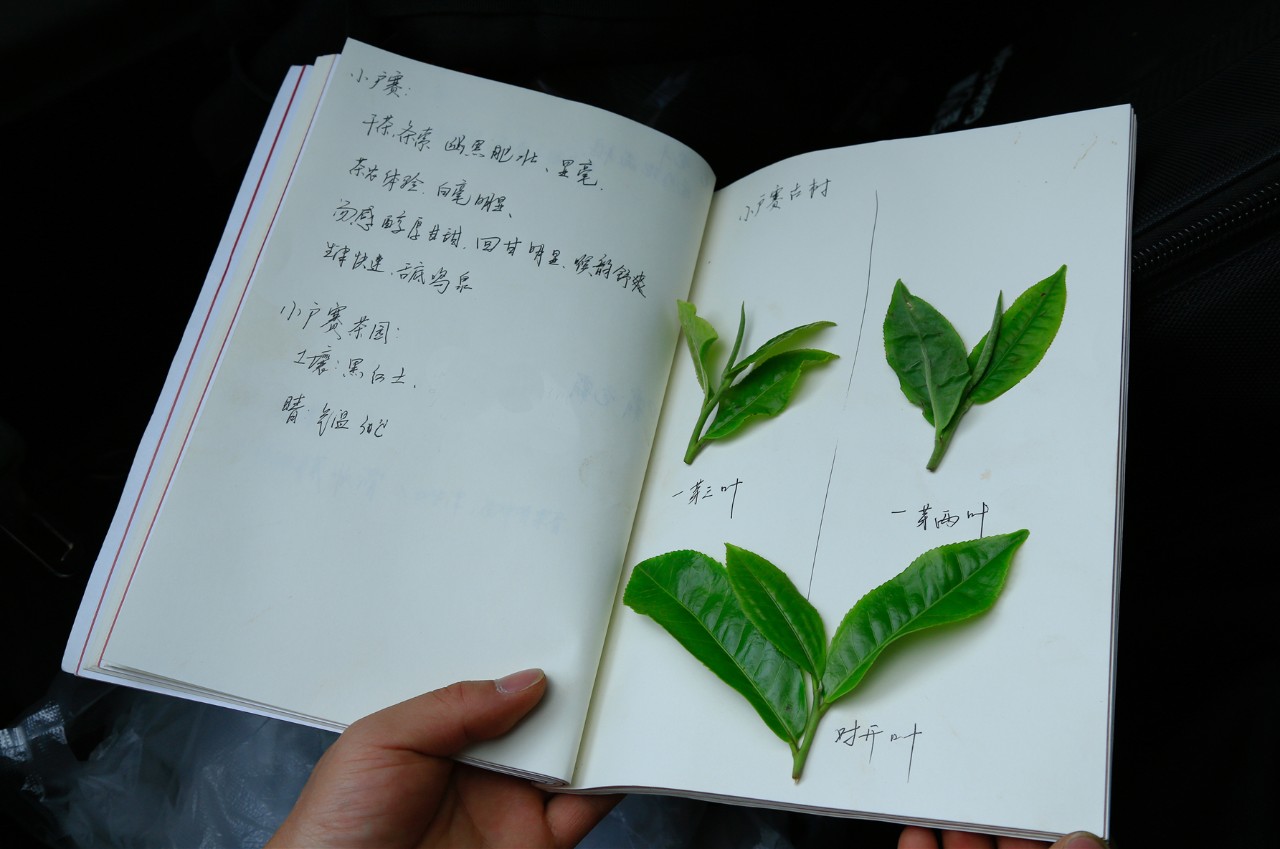 小户赛:
干茶,条索 黝黑肥壮、显毫.
茶农体验.白毫明显、
口感醇厚甘甜.回甘明显.喉韵舒爽
生津快速.舌底鸣泉
小户赛茶园:
土壤:黑白土.
晴:气温
小户赛古村
一芽三叶
一芽两叶
对开叶